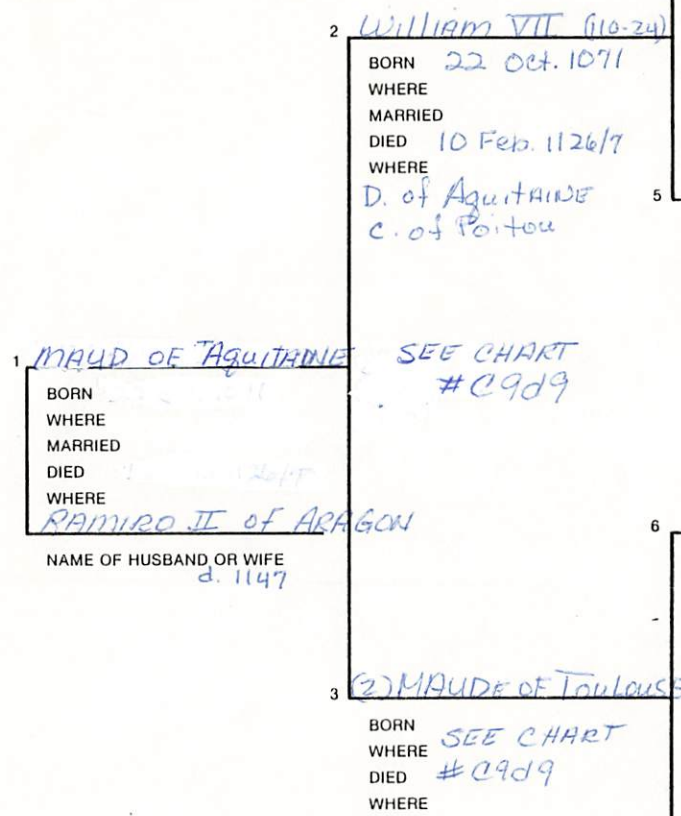 2 William VII (110-24)
BORN 22 Oct. 1071
WHERE
MARRIED
DIED 10 Feb. 1126/7
WHERE
D. of AquitAINE
C. of Poitou
5
1 MAUD OF AQUITAINE
SEE CHART
#C9d9
BORN
WHERE
MARRIED
DIED
WHERE
RAMIRO II of ARAGON
NAME OF HUSBAND OR WIFE
d. 1147
6
3 (2) MAUDE OF Toulouse
BORN
WHERE SEE CHART
DIED #C9d9
WHERE